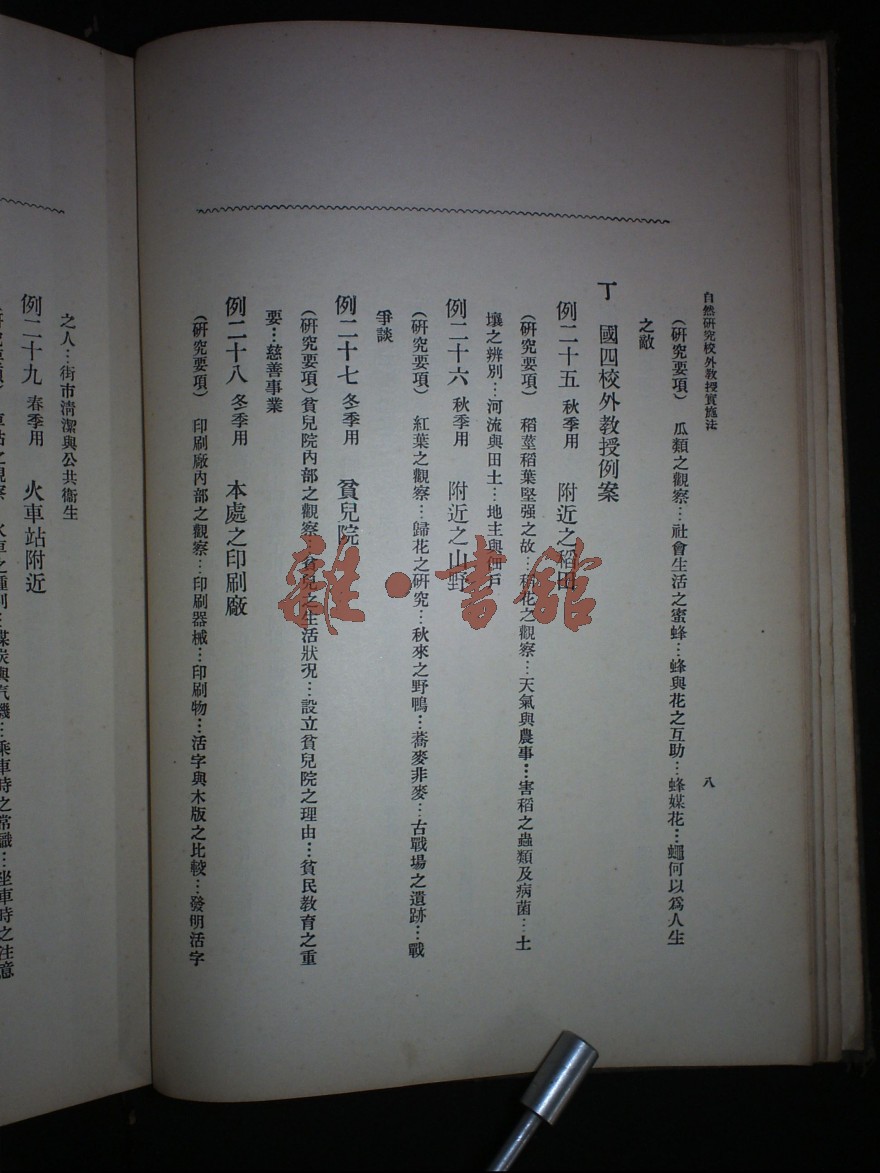 自然研究校外教授實施法
八
(研究要項) 瓜類之觀察…社會生活之蜜蜂…蜂與花之互助…蜂媒花…蠅何以爲人生
之敵
丁 國四校外教授例案
例二十五 秋季用 附近之稻田
(研究要項) 稻莖稻葉堅强之故…稻花之觀察…天氣與農事…害稻之蟲類及病菌…土
壤之辨別…河流與田土…地主與佃戶
例二十六 秋季用 附近之山野
(研究要項) 紅葉之觀察…歸花之研究…秋來之野鴨…蕎麥非麥…古戰場之遺跡…戰
爭談
例二十七 冬季用 貧兒院
(研究要項)貧兒院內部之觀察…貧兒之生活狀況…設立貧兒院之理由…貧民教育之重
要…慈善事業
例二十八 冬季用 本處之印刷廠
(研究要項) 印刷廠內部之觀察…印刷器械…印刷物…活字與木版之比較…發明活字
之人…街市清潔與公共衞生
例二十九 春季用 火車站附近
(研究要項) 車站之觀察…火車之種別…煤炭與汽機…乘車時之常識…坐車時之注意
雜·書館